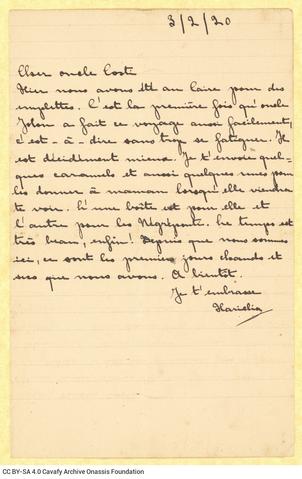 3/2/20
Cher oncle Costi
Hier nous avons été au Caire pour des
emplettes. C'est la première fois qu'oncle
John a fait ce voyage aussi facilement,
c'est-à-dire sans trop se fatiguer. Il
est décidément mieux. Je t'envoie quel-
ques caramels et aussi quelques unes pour
les donner à maman lorsqu'elle viendra
te voir. L'une boîte est pour elle et
l'autre pour les Négreponte. Le temps est
très beau, enfin! Depuis que nous sommes
ici, ce sont les premiers jours chauds et
secs que nous avons. A bientôt.
Je t'embrasse
Hariclia
CC BY-SA 4.0 Cavafy Archive Onassis Foundation